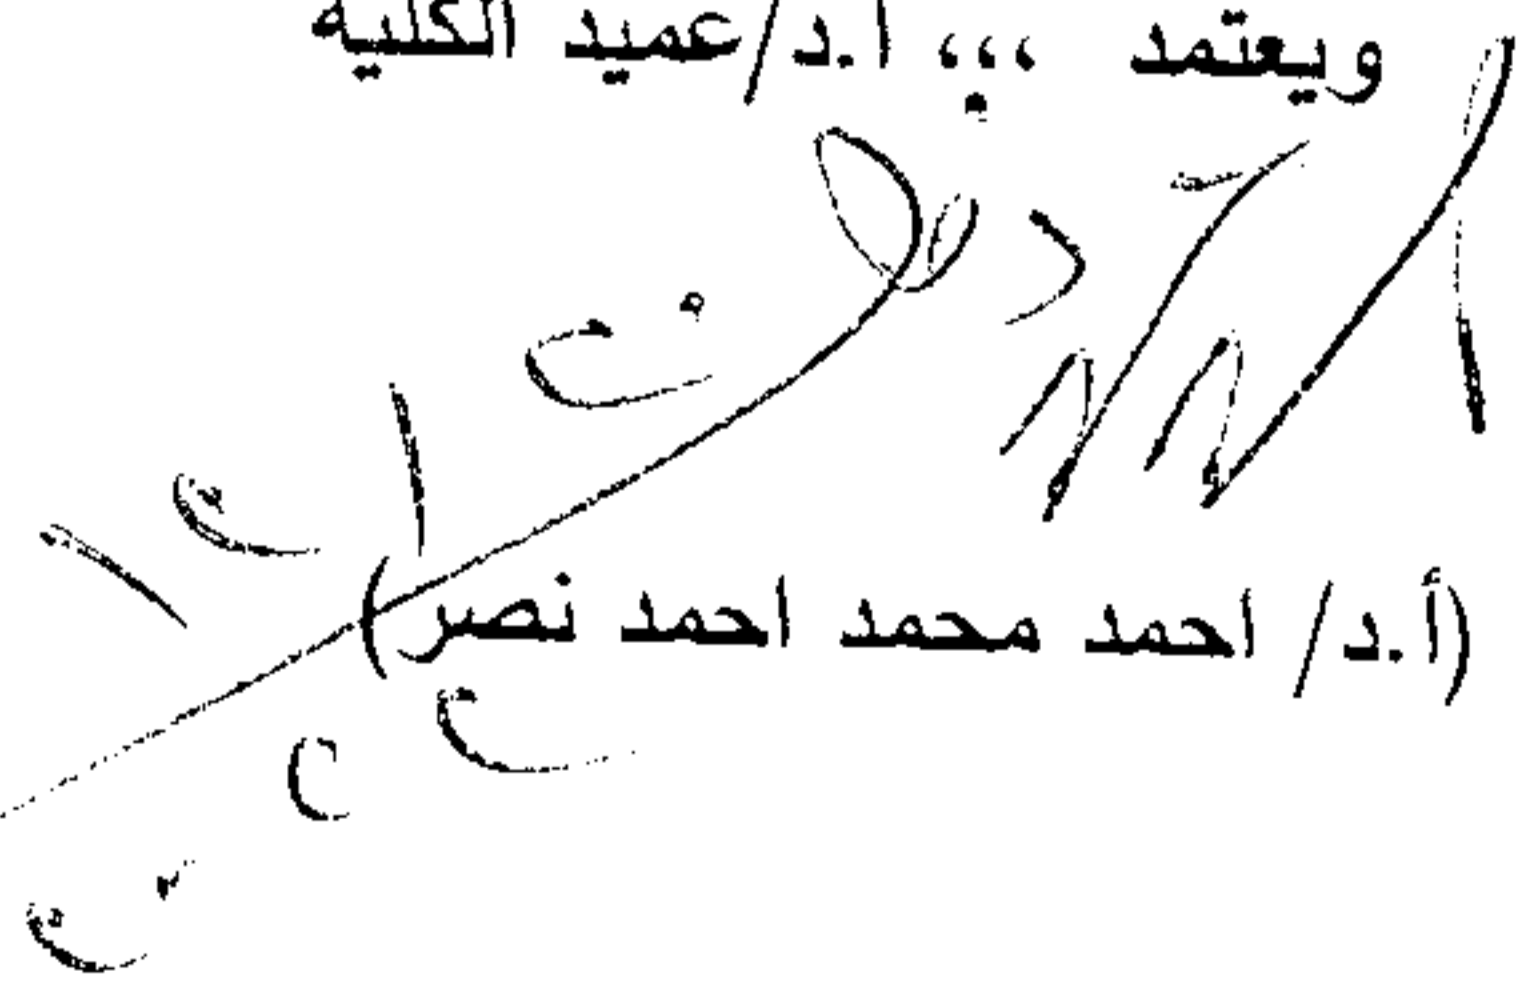 ويعتمد ،،، أ.د/عميد الكلية
(أ.د/ احمد محمد احمد نصر)